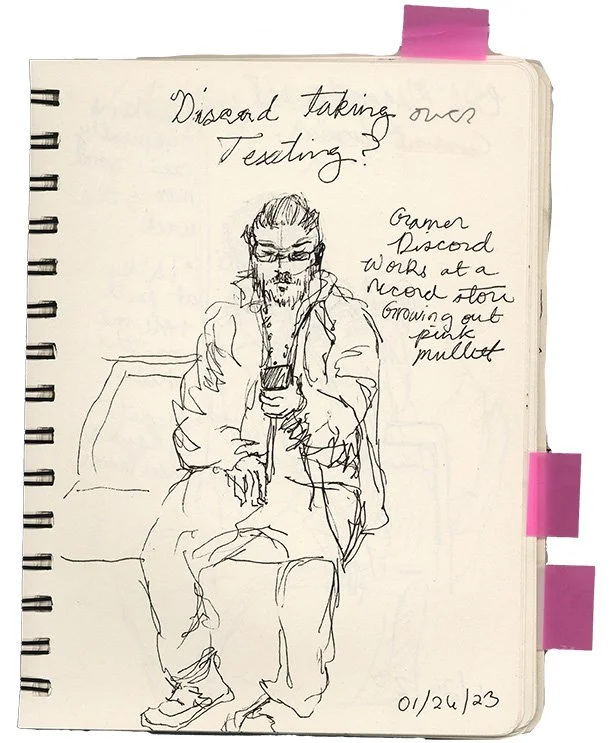 Discord taking over
Texting?
Gamer
Discord
Works at a
record store
Growing out
pink
mullet
01/26/23